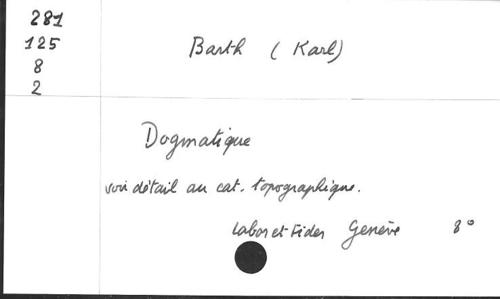 281
125
8
2
Barth (Karl)
Dogmatique
voir détail au cat. topographique.
Labor et Fides Genève 8°